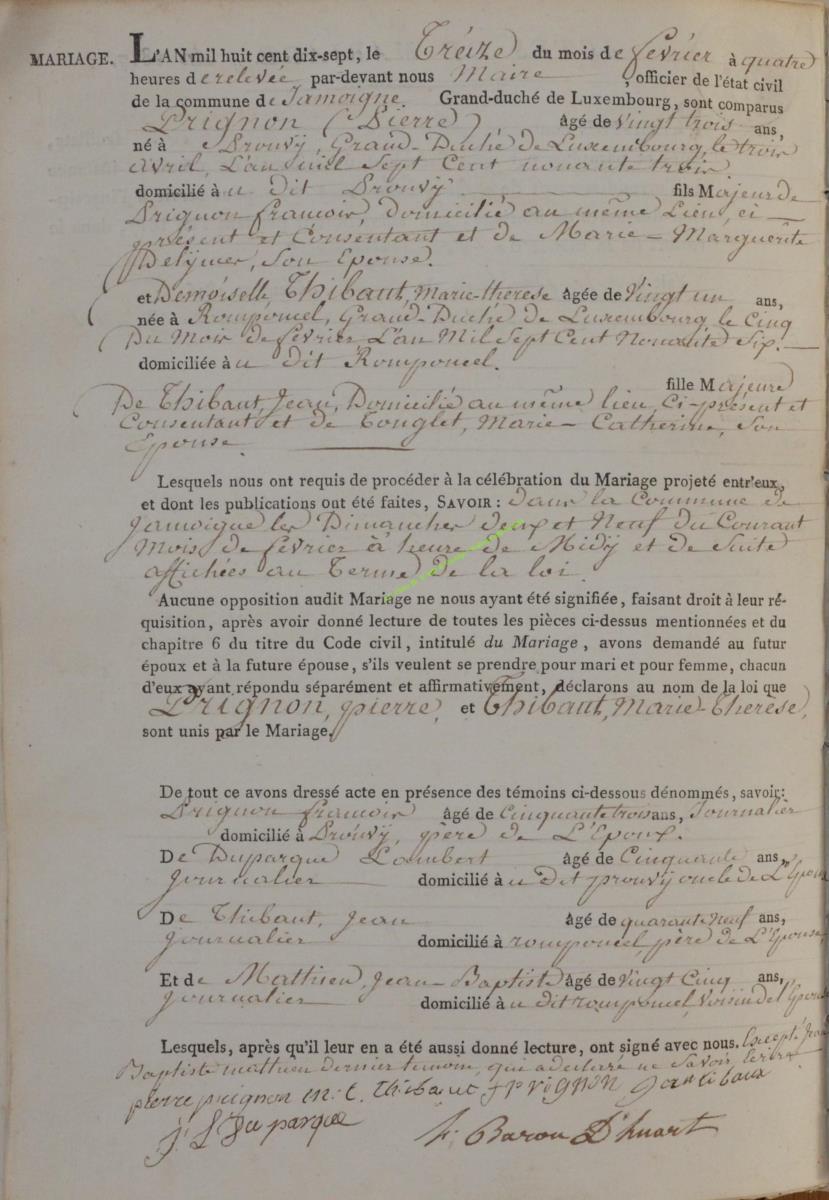 MARIAGE. L'AN mil huit cent dix-sept, le Tréize du mois de fevrier à quatre
heures de relevée par-devant nous Maire , officier de l'état civil
de la commune de Jamoigne. Grand-duché de Luxembourg, sont comparus
Prignon (Pierre) âgé de vingt trois ans,
né à Prouvÿ, Grand-Duché de Luxembourg, le trois
avril, L'an mil sept Cent nonante trois
domicilié à u dit Prouvÿ fils Majeur de
Prignon francois, domicilié au même Lieu, ci
présent et Consentant et de Marie-Marguerite
son Epouse.
et Demoiselle, Thibaut, Marie-therese âgée de Vingt un ans,
née à Romponcel, Grand-Duché de Luxembourg le Cinq
Du Mois de fevrier L'an Mil Sept Cent Nonante Six.
domiciliée à u dit Romponcel.
fille Majeure
De Thibaut, Jean, Domicilié au même lieu, Ci-présent et
Consentant et de Tonglet, Marie-Catherine, Son
Epouse
Lesquels nous ont requis de procéder à la célébration du Mariage projeté entr'eux,
et dont les publications ont été faites, SAVOIR : dans la Commune de
Jamoigne les Dimanches deux et Neuf du Courant
Mois de fevrier à heure de Midÿ et de Suite
affichées au Terme de la loi.
Aucune opposition audit Mariage ne nous ayant été signifiée, faisant droit à leur ré-
quisition, après avoir donné lecture de toutes les pièces ci-dessus mentionnées et du
chapitre 6 du titre du Code civil, intitulé du Mariage, avons demandé au futur
époux et à la future épouse, s'ils veulent se prendre pour mari et pour femme, chacun
d'eux ayant répondu séparément et affirmativement, déclarons au nom de la loi que
Prignon, pierre, et Thibaut, Marie-Therèse,
sont unis par le Mariage.
De tout ce avons dressé acte en présence des témoins ci-dessous dénommés, savoir:
Prignon francois âgé de Cinquante trois ans, Journalier
domicilié à Prouvÿ, pere de L'Epoux.
De Duparque Lambert âgé de Cinquante ans,
Journalier domicilié à u dit prouvÿ oncle de L'Epoux
De Thibaut, Jean âgé de quarante neuf ans,
Journalier domicilié à romponcel, père de L'Epouse,
Et de Mathieu, Jean-Baptiste âgé de Vingt Cinq ans,
Journalier domicilié à u dit romponcel, Voisin de l'Epouse
Lesquels, après qu'il leur en a été aussi donné lecture, ont signé avec nous. Excepté Jean
Baptiste mathieu dernier temoin, qui a declaré ne Savoir Ecrire
pierre prignon m: t. thibaut f prignon Jean tibaux
j: L Du parque h: Baron D'huart